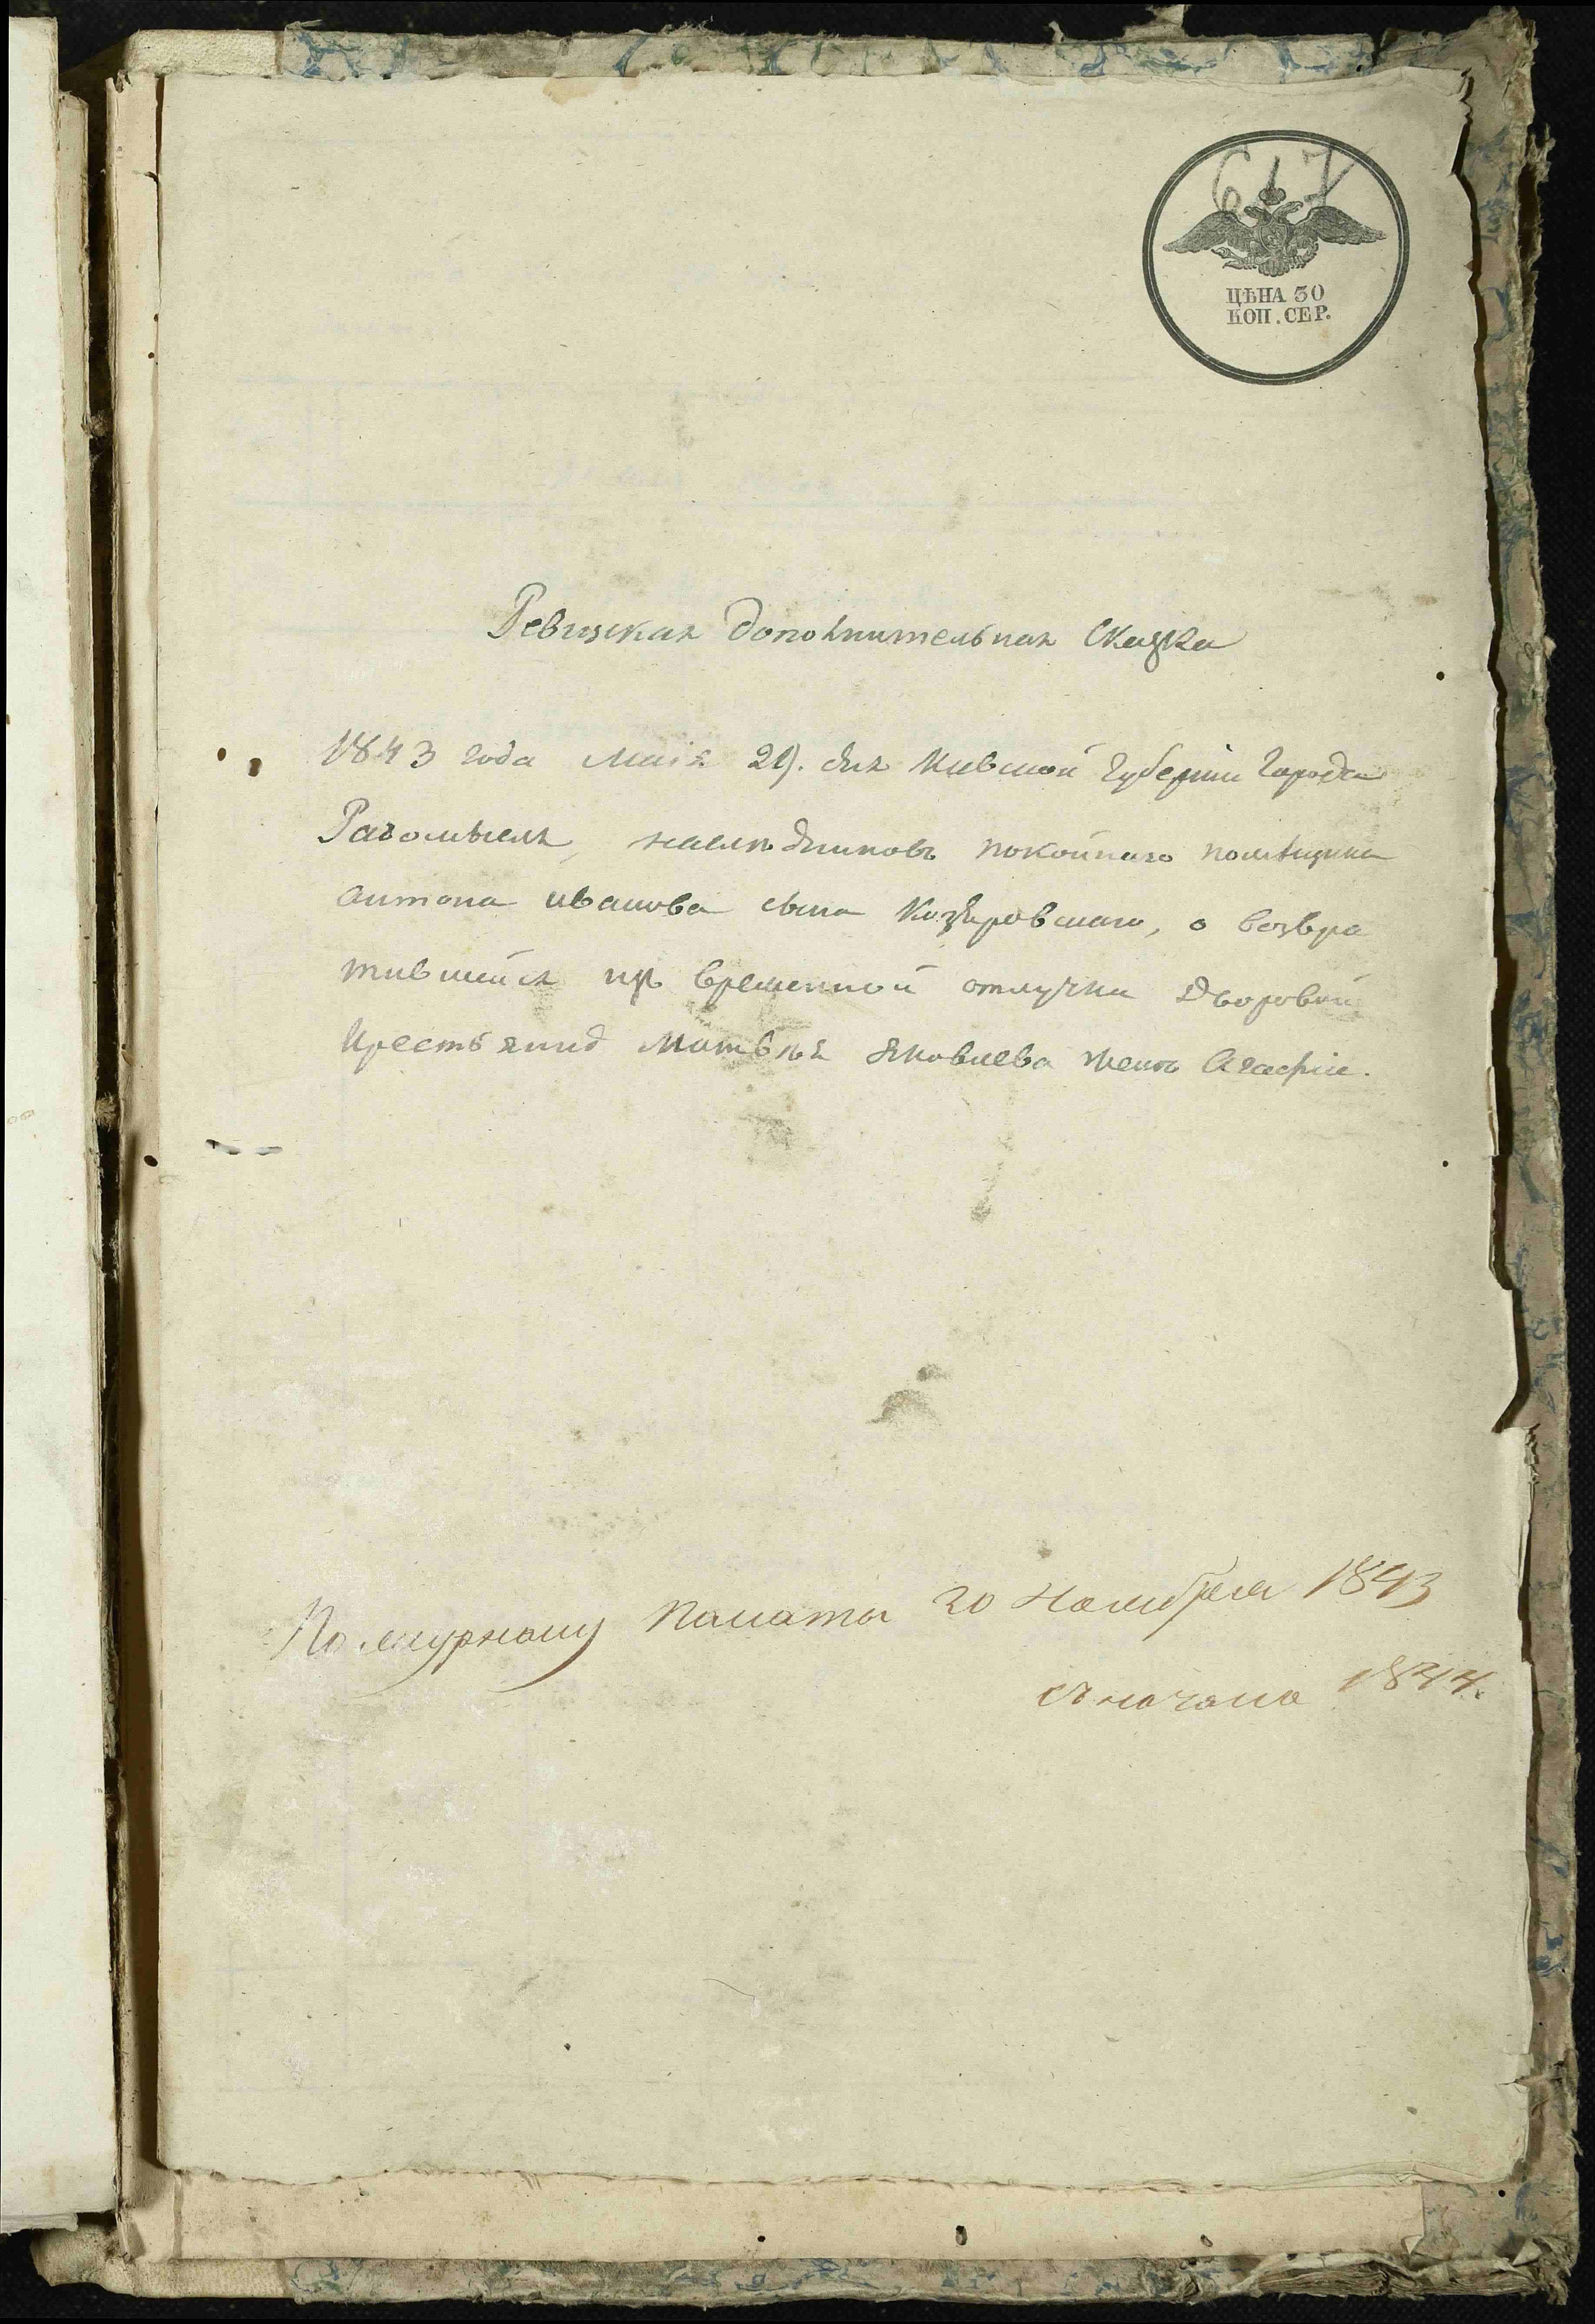 617
ЦѢНА 30
КОП. СЕР.
Ревизская дополнительная Сказка
1843 года Маія 29. дня Кивской Губерніи Города
Радомысля, наслѣдниковъ покойнаго помѣщика
Антона иванова сына Козѣровскаго, о возвра
тившейся изъ временной отлучки Дворовой
Крестьянид Матвѣя Яковлева женѣ Агафіи.
По журналу Палаты 20 Ноября 1843
съ начала 1844.